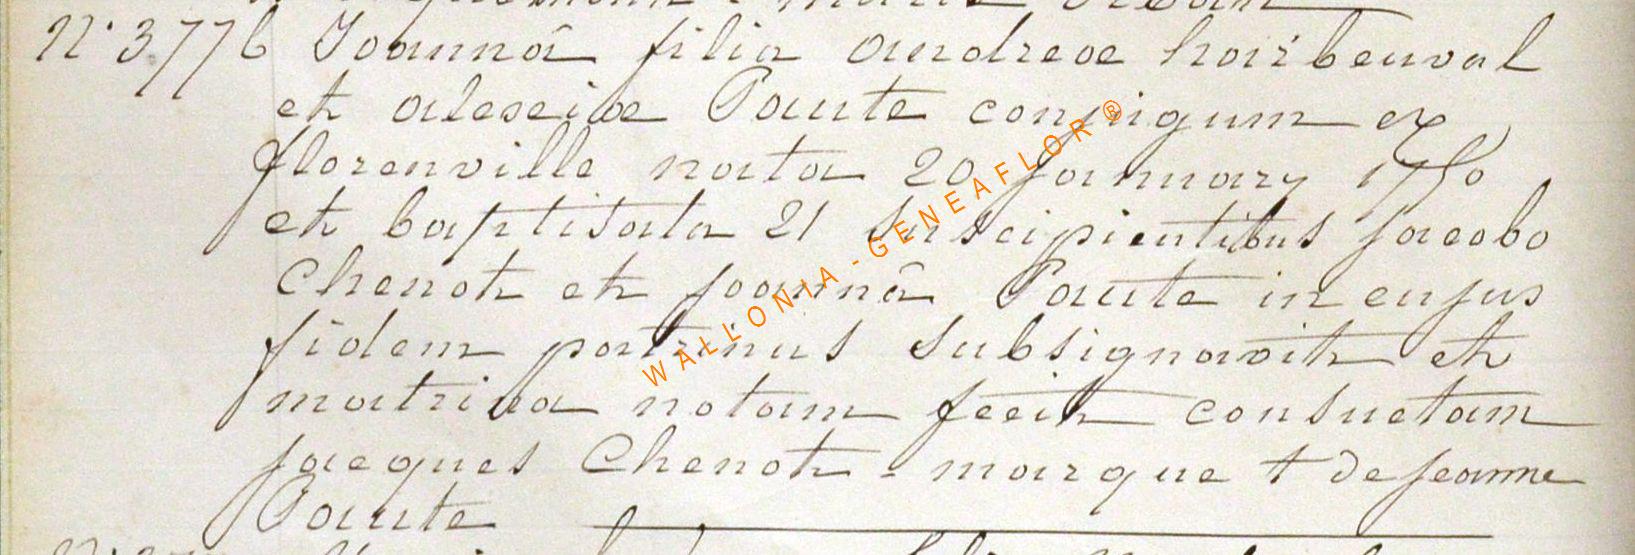 N° 3776 Joannâ filia andreae hairbeuval
et aleseiae Paute conjugum ex
florenville nata 20 January 1750
et baptisata 21 suscipientibus jacobo
Chenot et joannâ Paute in cujus
fidem patrinus subsignavit et
matrina notam fecit consuetam
jacques Chenot - marque + de jeanne
Paute
WALLONIA - GENEAFLOR ®